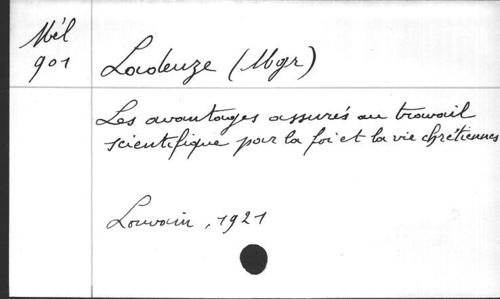 Mél
901
Ladeuze (Mgr)
Les avantages assurés au travail
scientifique par la foi et la vie chrétiennes
Louvain, 1921